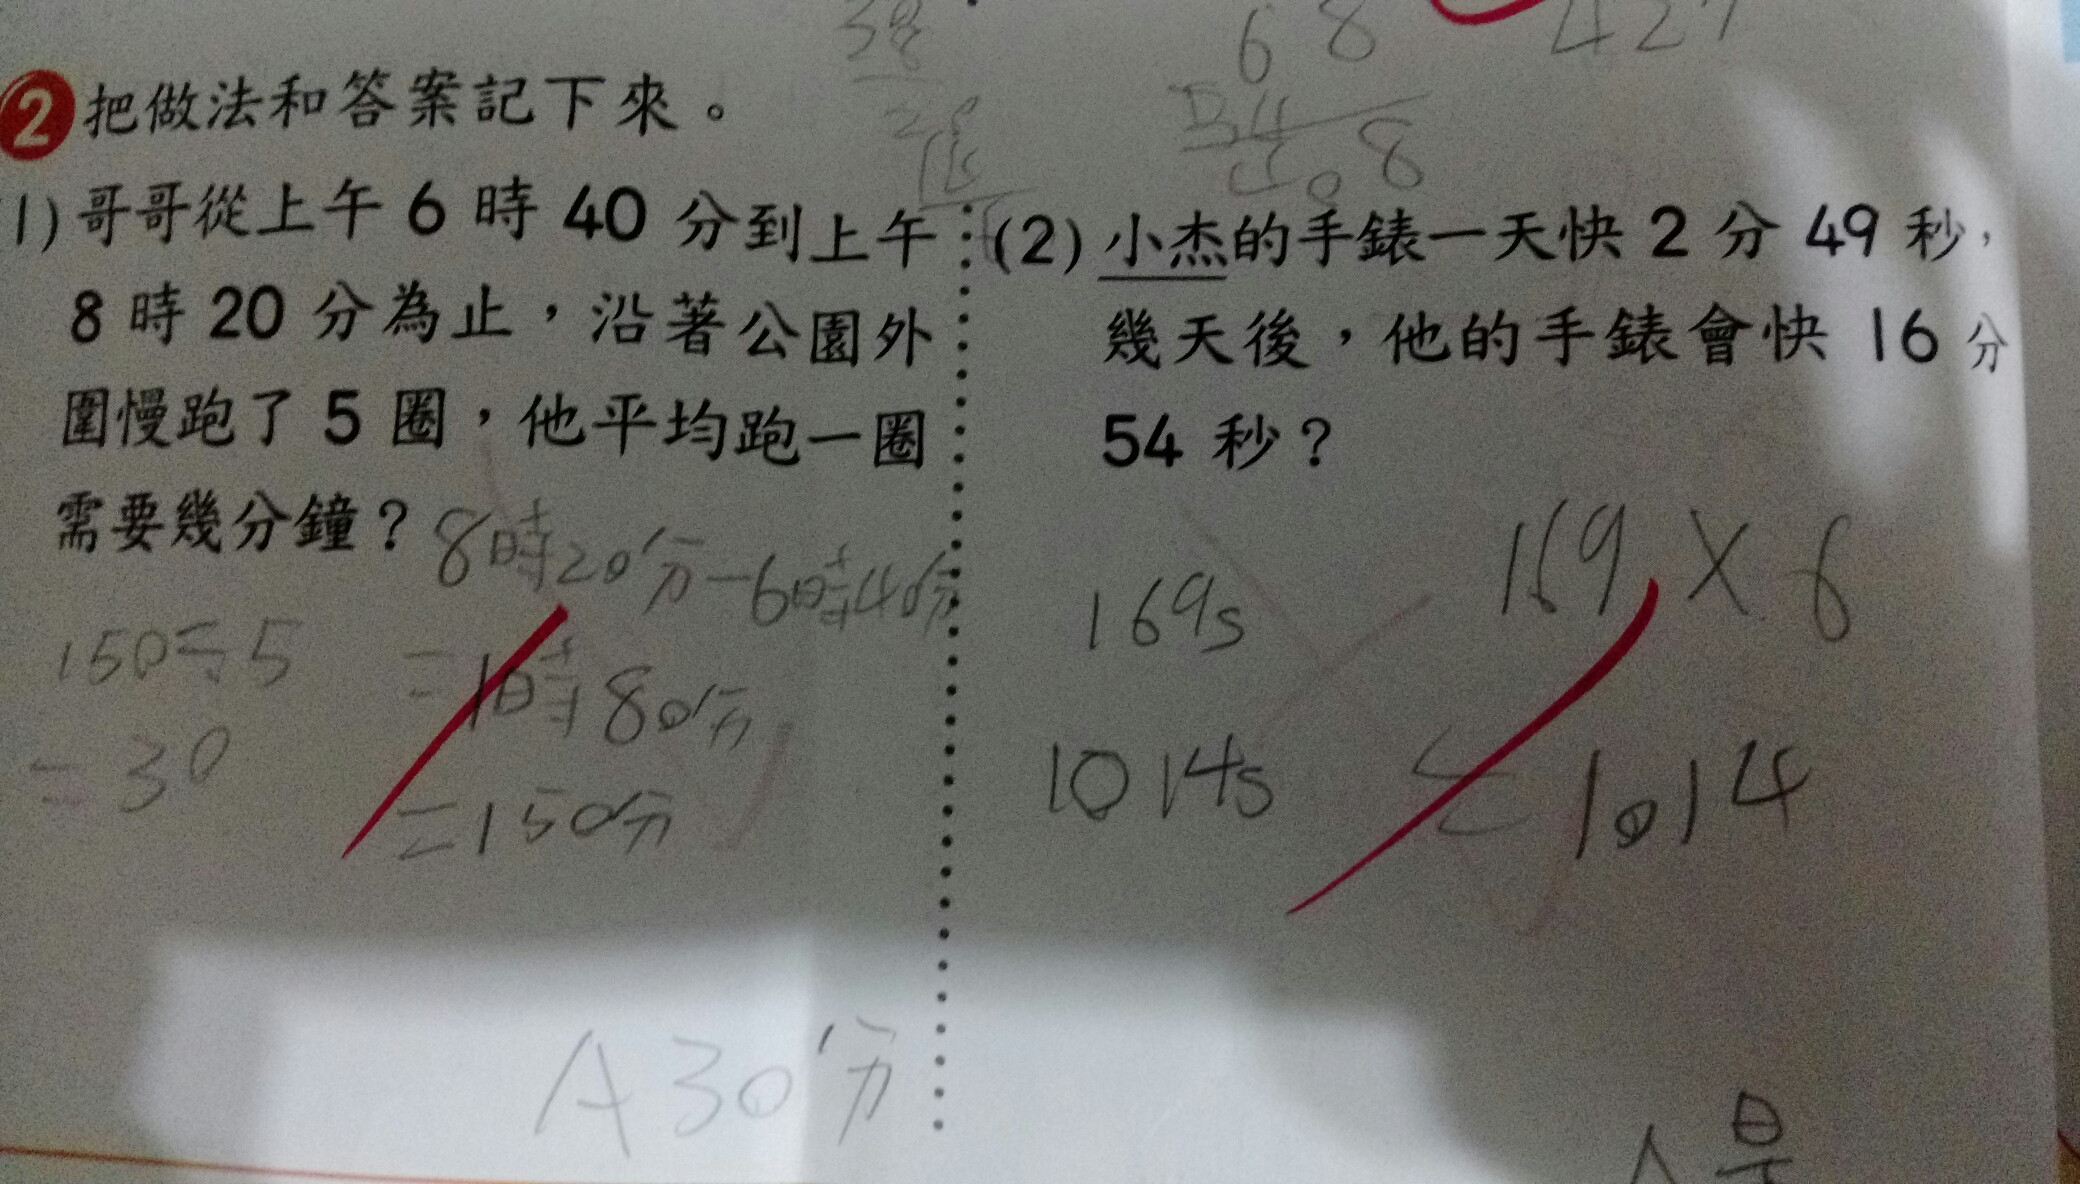 38
68
427
5.8
2 把做法和答案記下來。
1) 哥哥從上午 6 時 40 分到上午
8 時 20 分為止,沿著公園外
圍慢跑了 5 圈,他平均跑一圈
需要幾分鐘?
8時20分-6時40分
=1時80分
=150分
150÷5
=30
A30分
(2) 小杰的手錶一天快 2 分 49 秒,
幾天後,他的手錶會快 16 分
54 秒?
169s
1014s
169×6
=1014